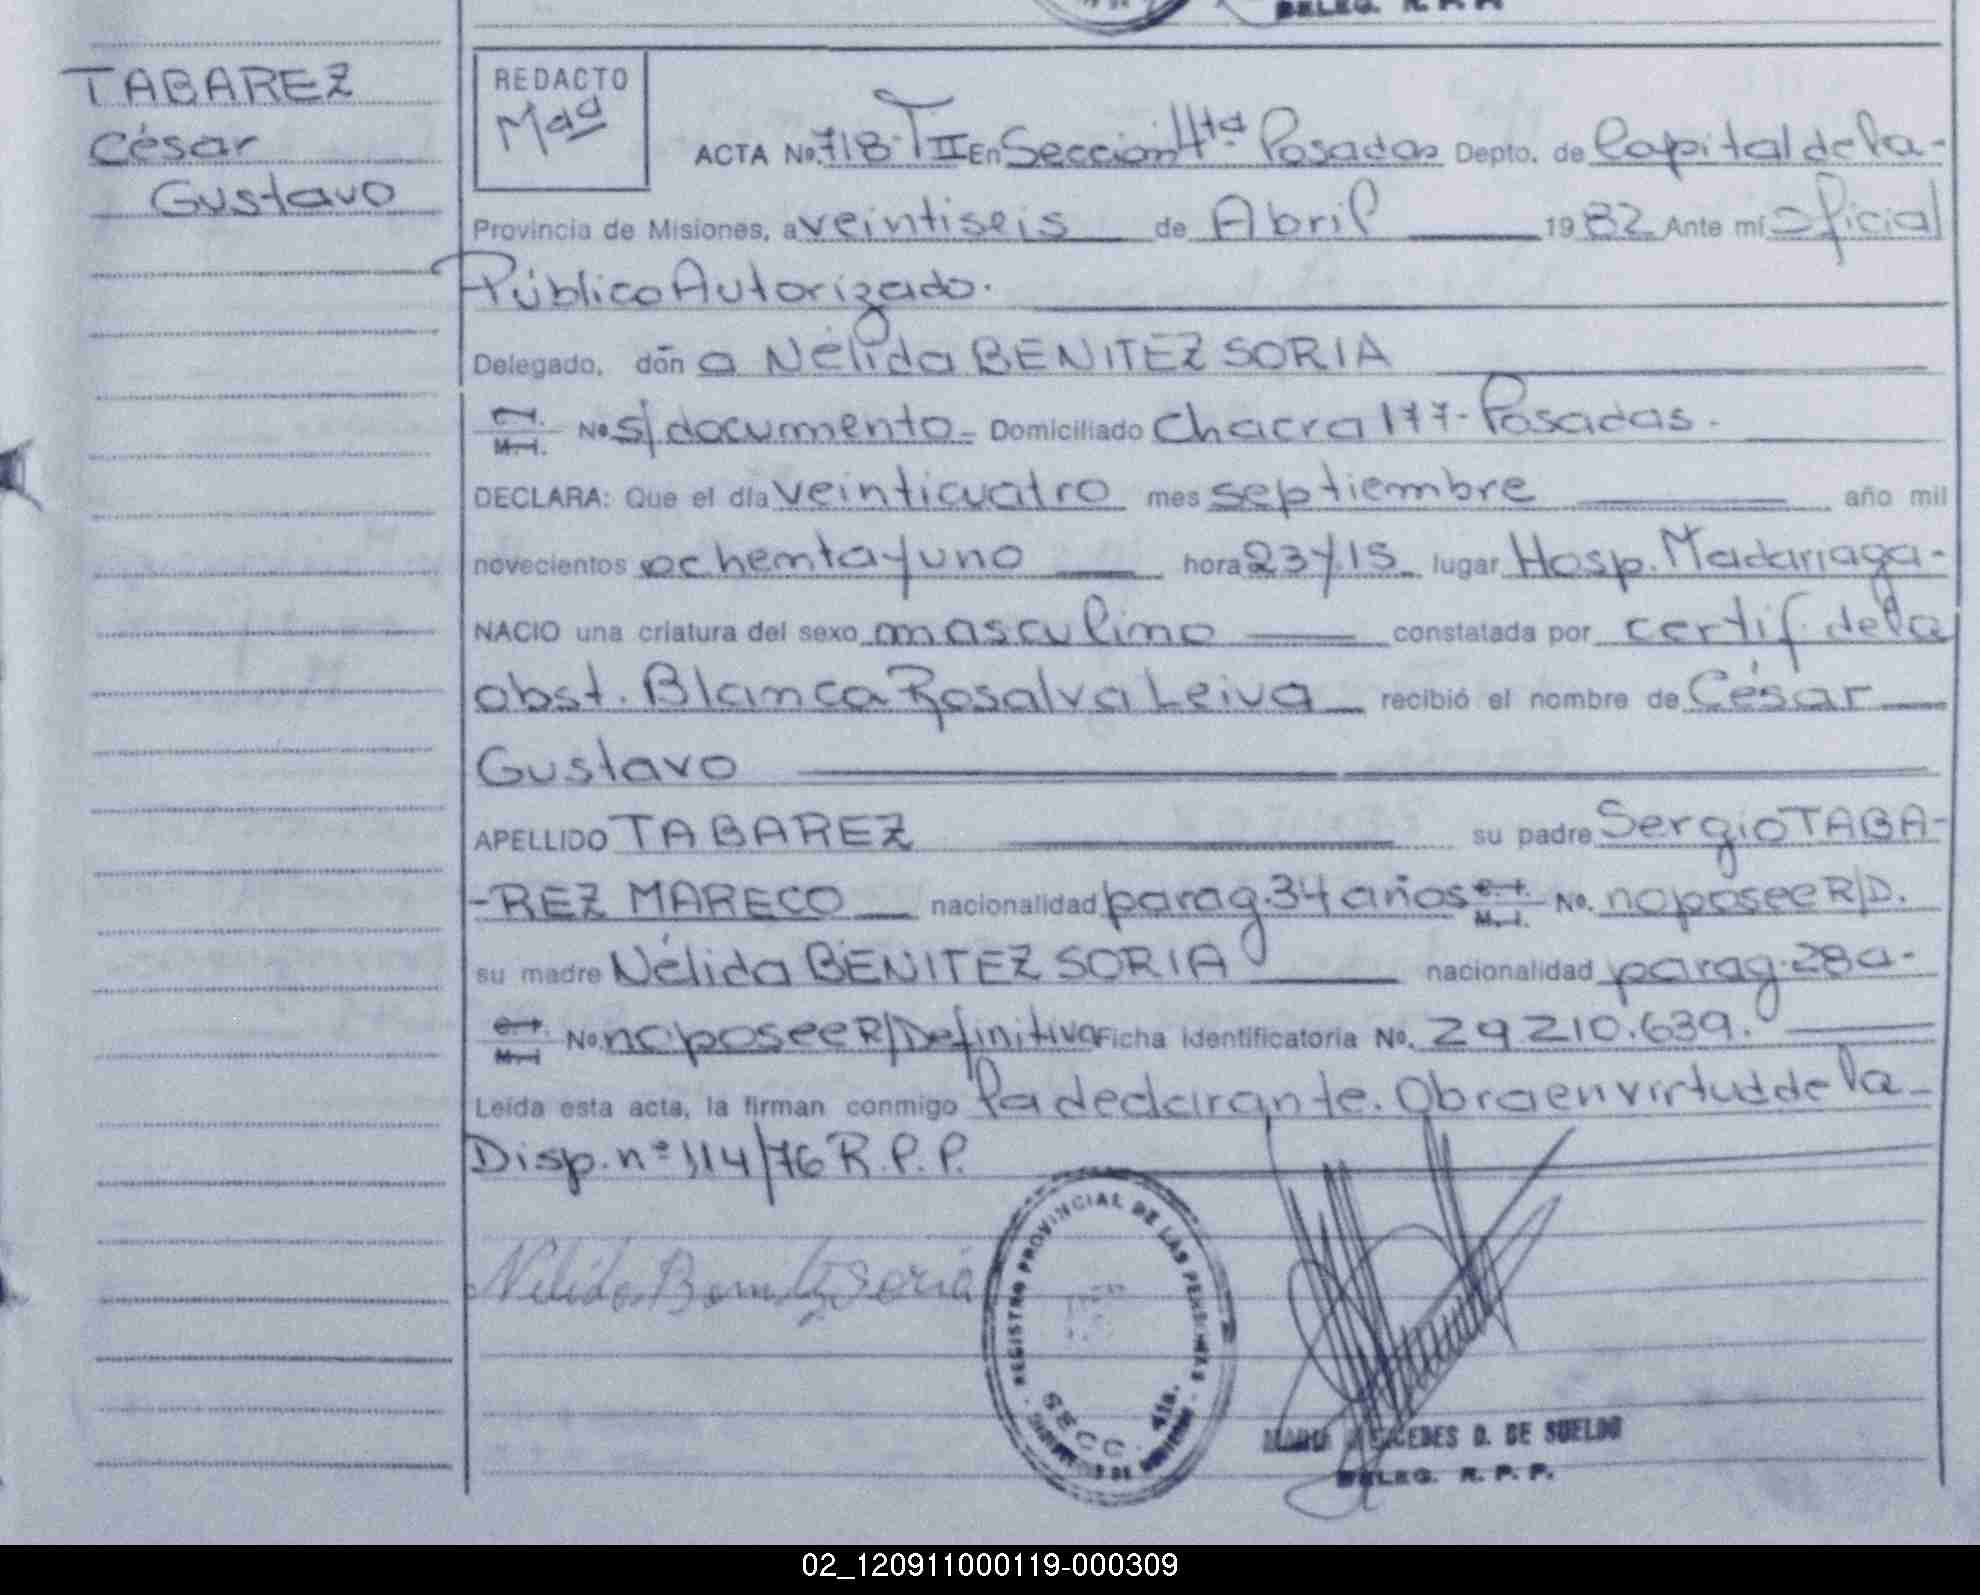 DELEG. R. P. P.
TABAREZ
César
Gustavo
REDACTO
Mªª
ACTA No. 718-T II En Sección 4ta Posadas Depto. de Capital de la-
Provincia de Misiones, a veintiseis de Abril 1982 Ante mí Oficial
Público Autorizado.
Delegado, don a Nélida BENITEZ SORIA
C.I. M.I. No s/documento- Domiciliado Chacra 177- Posadas.
DECLARA: Que el día veinticuatro mes septiembre año mil
novecientos ochenta y uno hora 23 y 15 lugar Hosp. Madariaga-
NACIO una criatura del sexo masculino constatada por certif. de la
obst. Blanca Rosalva Leiva recibió el nombre de César
Gustavo
APELLIDO TABAREZ su padre Sergio TABA-
-REZ MARECO nacionalidad parag. 34 años C.I. M.I. No. no posee R/D.
su madre Nélida BENITEZ SORIA nacionalidad parag. 28 a-
C.I. M.I No. no posee R/Definitiva Ficha identificatoria No. 29.210.639.
Leída esta acta, la firman conmigo la declarante. Obra en virtud de la-
Disp. nº 114/76 R.P.P.
Nélida Benitez Soria
REGISTRO PROVINCIAL DE LAS PERSONAS
SECC. 4ta.
MARIA MERCEDES D. DE SUELDO
DELEG. R. P. P.
02_120911000119-000309